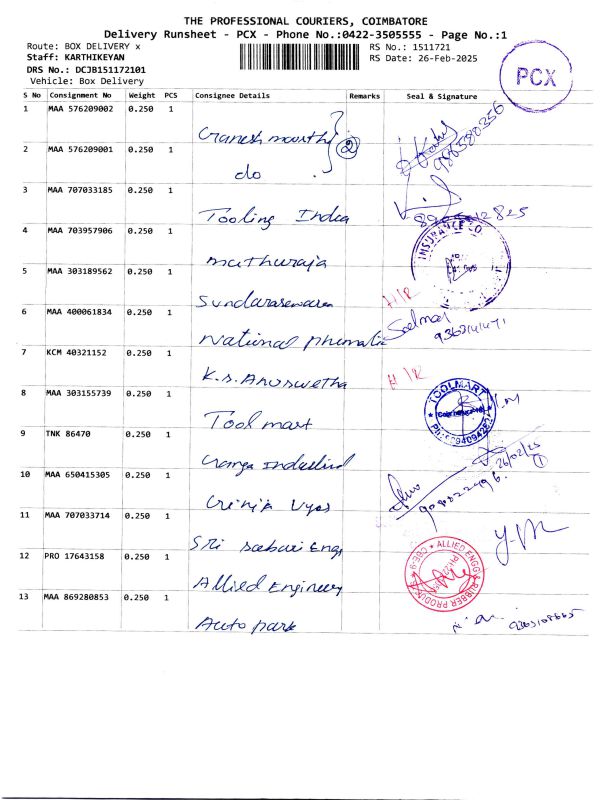 THE PROFESSIONAL COURIERS, COIMBATORE
Delivery Runsheet - PCX - Phone No.:0422-3505555 - Page No.:1
Route: BOX DELIVERY x
RS No.: 1511721
Staff: KARTHIKEYAN
RS Date: 26-Feb-2025
DRS No.: DCJB151172101
Vehicle: Box Delivery
PCX
S No Consignment No Weight PCS Consignee Details Remarks Seal & Signature
1 MAA 576209002 0.250 1
Ganesh moorthy
2 MAA 576209001 0.250 1
do
2
3 MAA 707033185 0.250 1
Tooling India
4 MAA 703957906 0.250 1
muthuraja
INSURANCE CO.
5 MAA 303189562 0.250 1
H/R
6 MAA 400061834 0.250 1
National
7 KCM 40321152 0.250 1
K.S. Anuswetha
H/R
8 MAA 303155739 0.250 1
Tool mart
TOOLMART
9 TNK 86470 0.250 1
26/02/25
1
10 MAA 650415305 0.250 1
Vyas
11 MAA 707033714 0.250 1
Sri sabari Engg
12 PRO 17643158 0.250 1
Allied Engineery
ALLIED ENGG & RUBBER PRODUCTS
13 MAA 869280853 0.250 1
Auto park